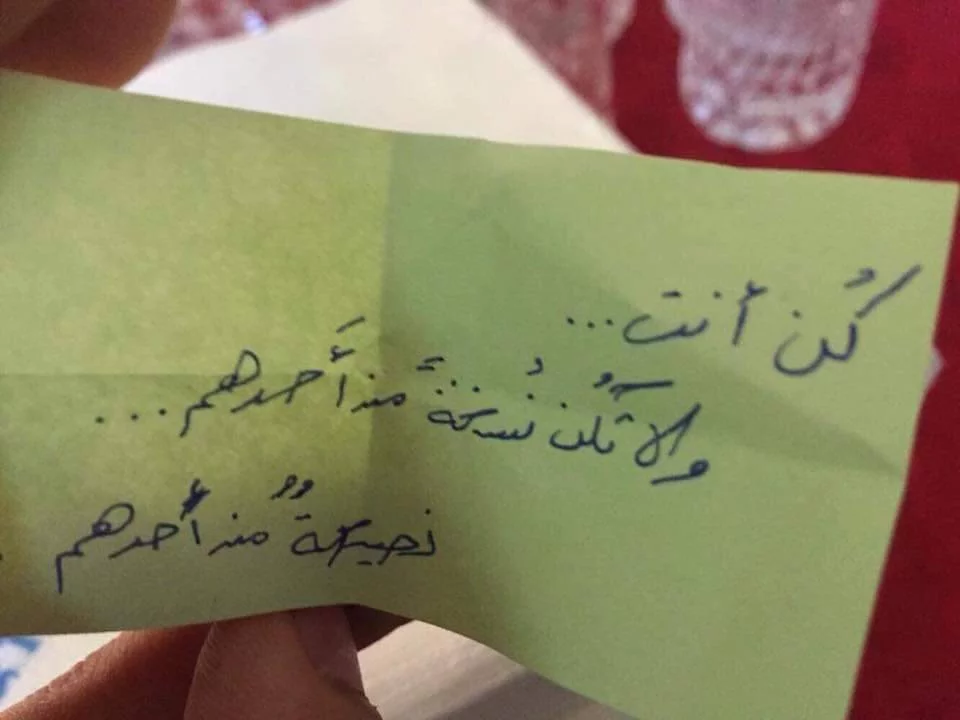 كُن أنت...
ولا تكُن نُسخةً من أَحدهم...
نصيحةٌ من أحدهم